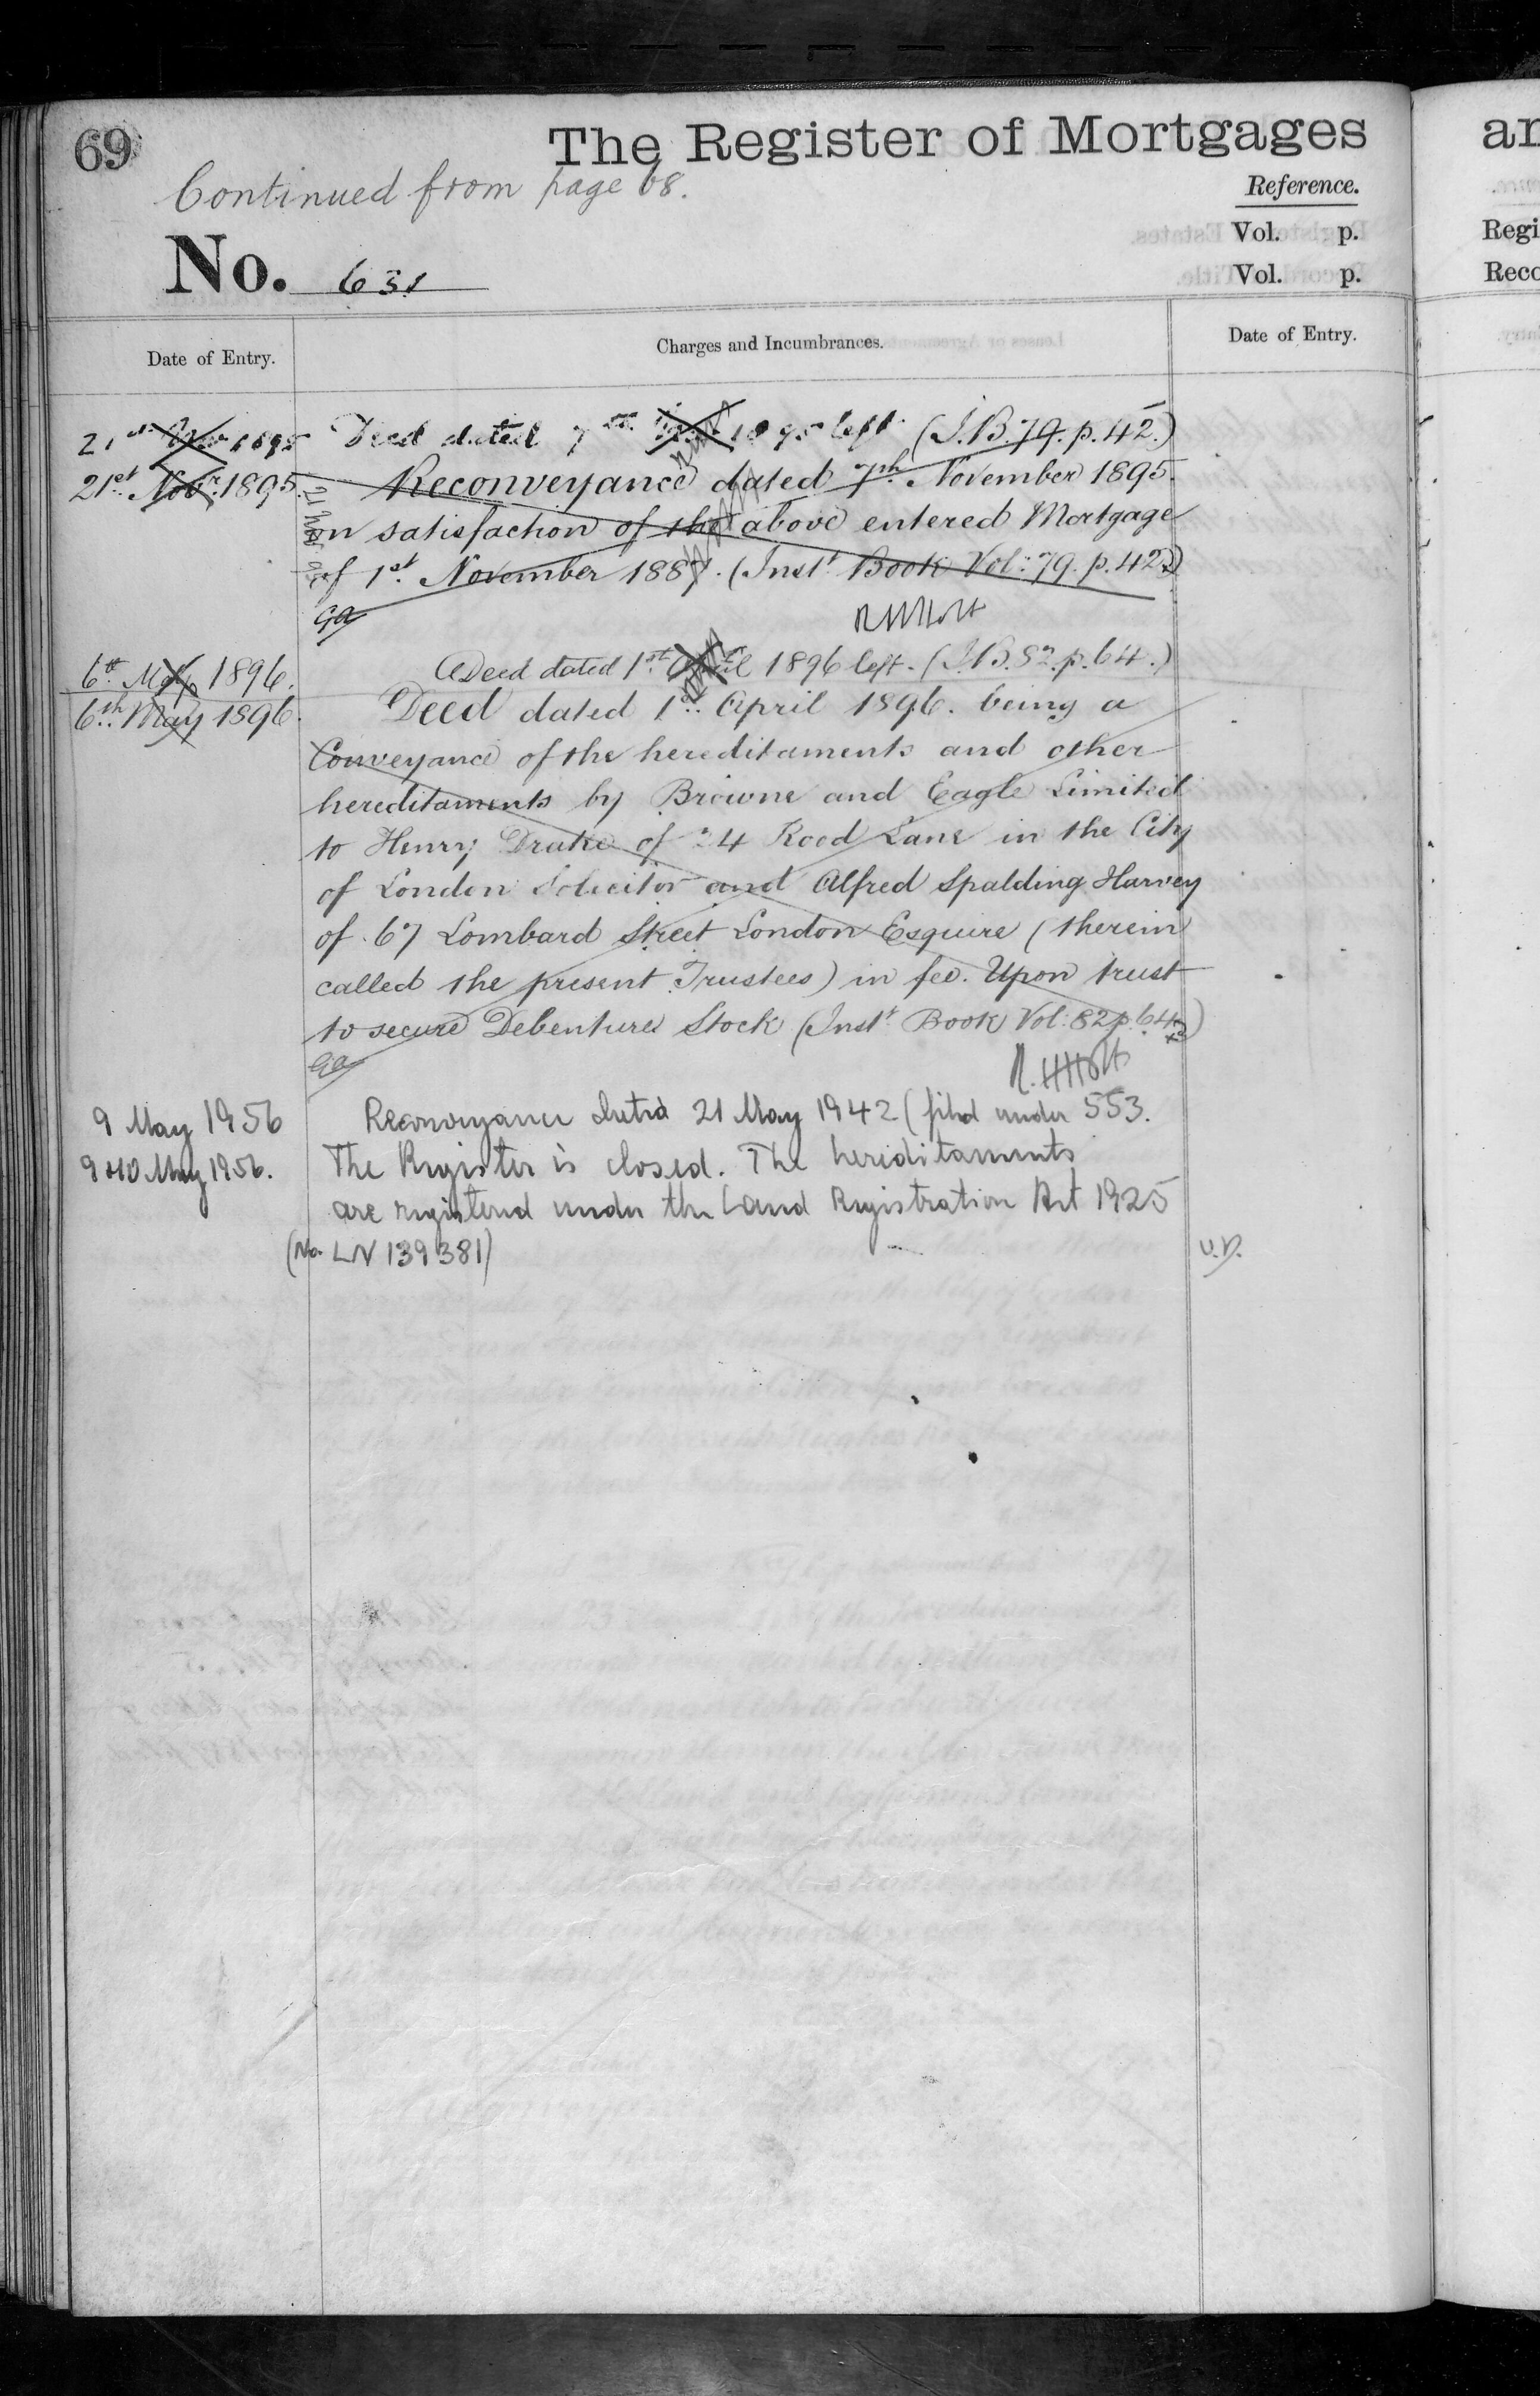 69
The Register of Mortgages
Continued from page 68.
Reference.
Vol. p.
Vol. p.
No. 631
Date of Entry.
Charges and Incumbrances.
Date of Entry.
21st Nov 1895 Deed dated 7th Novr 1895 left. (I.B. 79. p. 42.)
21st Novr 1895. Reconveyance dated 7th November 1895.
on satisfaction of the above entered Mortgage
of 1st November 1887. (Instt Book Vol: 79. p. 42.)
6th May 1896. A Deed dated 1st April 1896 left. (I.B. 82. p. 64.)
6th May 1896. Deed dated 1st April 1896. being a
Conveyance of the hereditaments and other
hereditaments by Browne and Eagle Limited
to Henry Drake of 24 Rood Lane in the City
of London Solicitor and Alfred Spalding Harvey
of 67 Lombard Street London Esquire (therein
called the present Trustees) in fee. Upon trust
to secure Debenture Stock (Instt Book Vol: 82 p. 64)
9 May 1956 Reconveyance dated 21 May 1942 (filed under 553.
9 & 10 May 1956. The Register is closed. The hereditaments
are registered under the Land Registration Act 1925
(No. LN 139381)
Regi
Reco